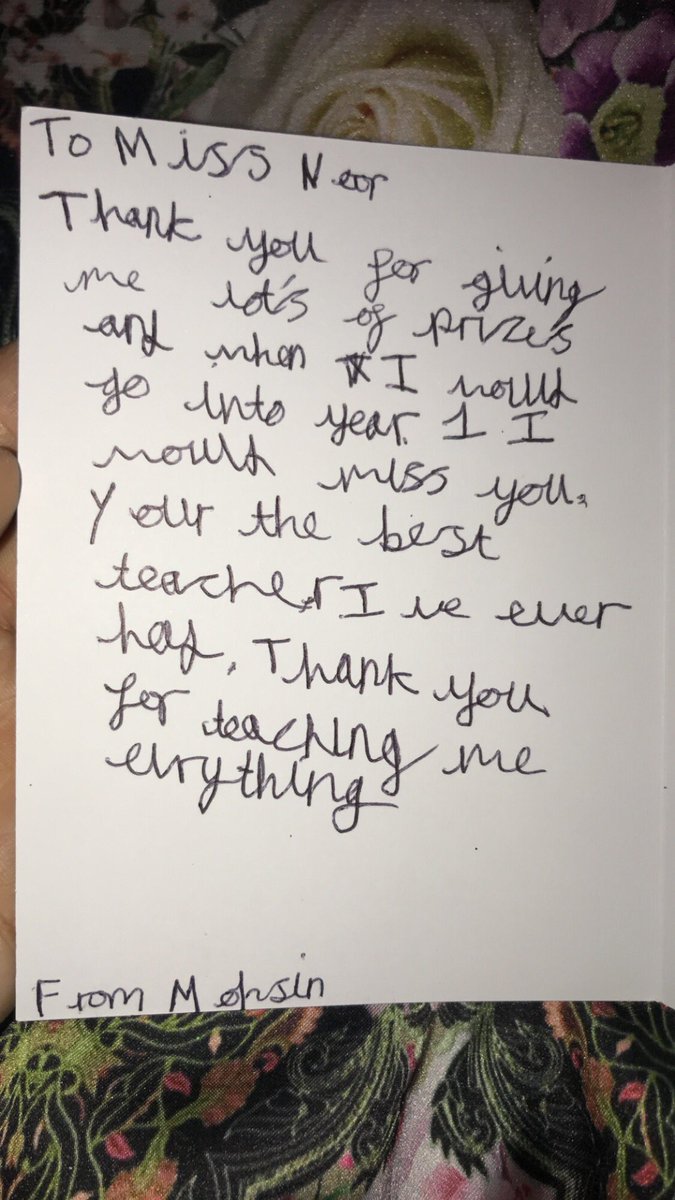 To Miss Neor
Thank you for giving
me lot's of prize's
and when I would
go into year 1 I
would miss you.
Your the best
teacher I've ever
had. Thank you
for teaching me
eivrything
From Mohsin